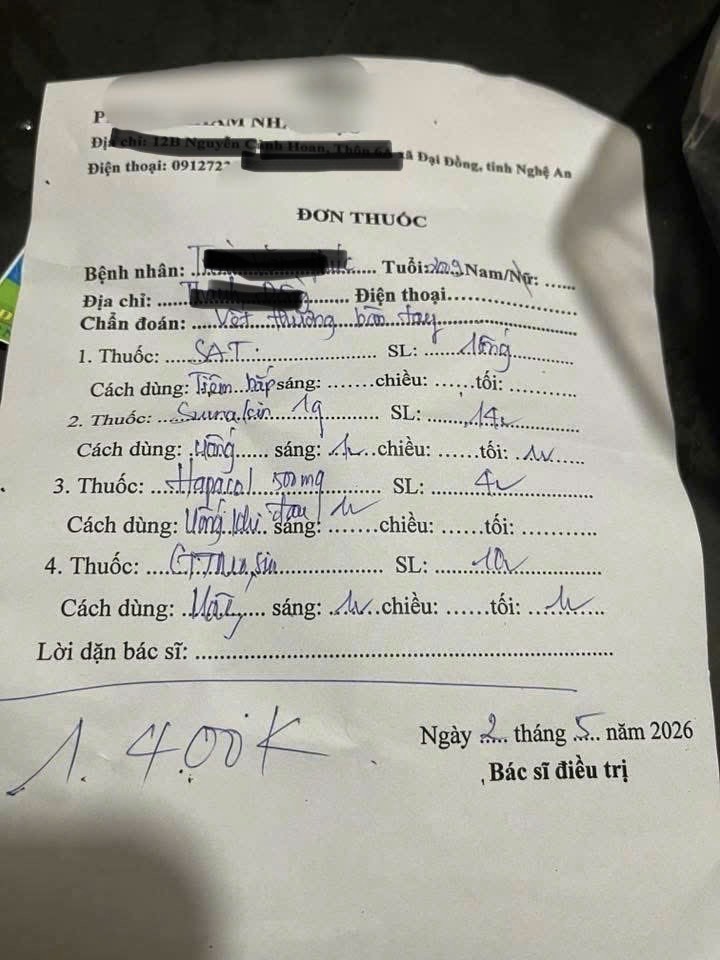 Địa chỉ: 12B Nguyễn Cảnh Hoan, Thôn xã Đại Đồng, tỉnh Nghệ An
Điện thoại: 091272
ĐƠN THUỐC
Bệnh nhân: ........ Tuổi: 2009 Nam/Nữ: ......
Địa chỉ: ........ Điện thoại........
Chẩn đoán: Vết thương bàn tay
1. Thuốc: SAT. SL: 1 ống
Cách dùng: Tiêm bắp sáng: ....... chiều: ...... tối: ..........
2. Thuốc: 1g SL: 14v
Cách dùng: Uống sáng: 1v chiều: ...... tối: 1v
3. Thuốc: Hapacol 500mg SL: 4v
Cách dùng: Uống khi đau 1v sáng: ....... chiều: ...... tối: ..........
4. Thuốc: SL: 10v
Cách dùng: Uống sáng: 1v chiều: ...... tối: 1v
Lời dặn bác sĩ: ........
1.400K
Ngày 2 tháng 5 năm 2026
Bác sĩ điều trị